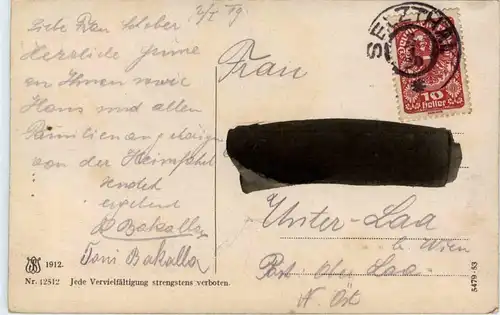 2/I 19.
Liebe Frau Schober
Herzliche
an Ihnen sowie
Hans und allen
Familienangehörigen
von der Heimfahrt
sendet
ergebend
Bakalla
Toni Bakalla
Frau
Unter-Laa
b. Wien
Post Ober Laa
N. Öst
SELZTHAL
10
Heller
1912.
Nr. 12512 Jede Vervielfältigung strengstens verboten.
5479-53